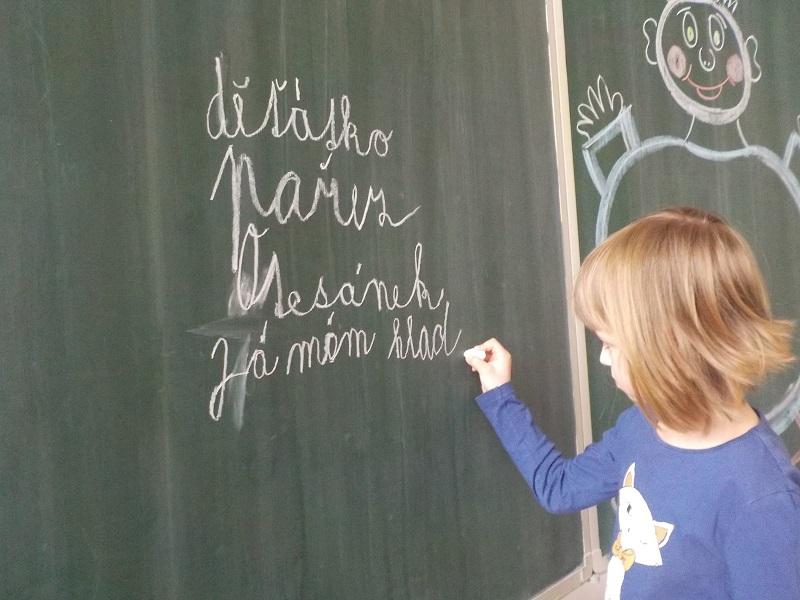 děťátko
pařez
Otesánek
Já mám hlad